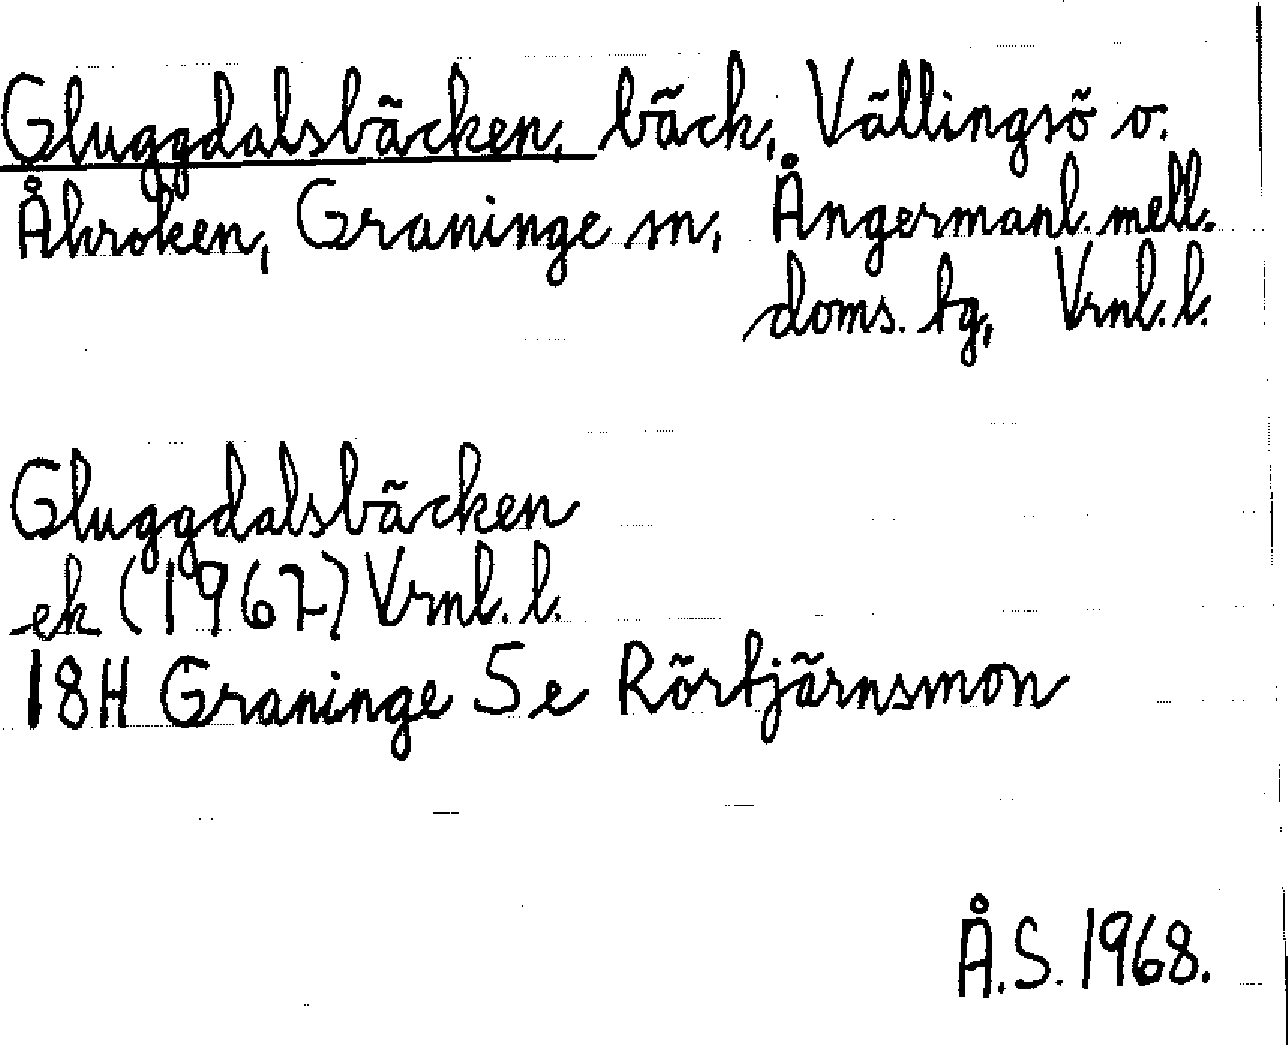 Gluggdalsbäcken, bäck, Vällingsö o.
Åkroken, Graninge sn, Ångermanl. mell.
doms. tg, Vrnl. l.
Gluggdalsbäcken
ek (1967) Vrnl. l.
18H Graninge 5e Rörtjärnsmon
Å.S. 1968.